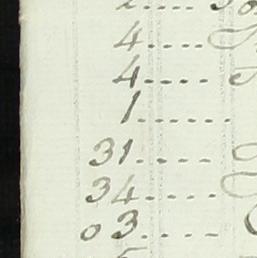 4....
4....
1......
31.....
34.....
03.....